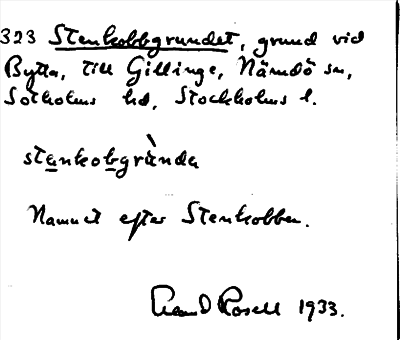 323 Stenkobbgrundet, grund vid
Bytta, till Gillinge, Nämdö sn,
Sotholms hd, Stockholms l.
stenkobgrànda
Namnet efter Stenkobben.
Rosell 1933.